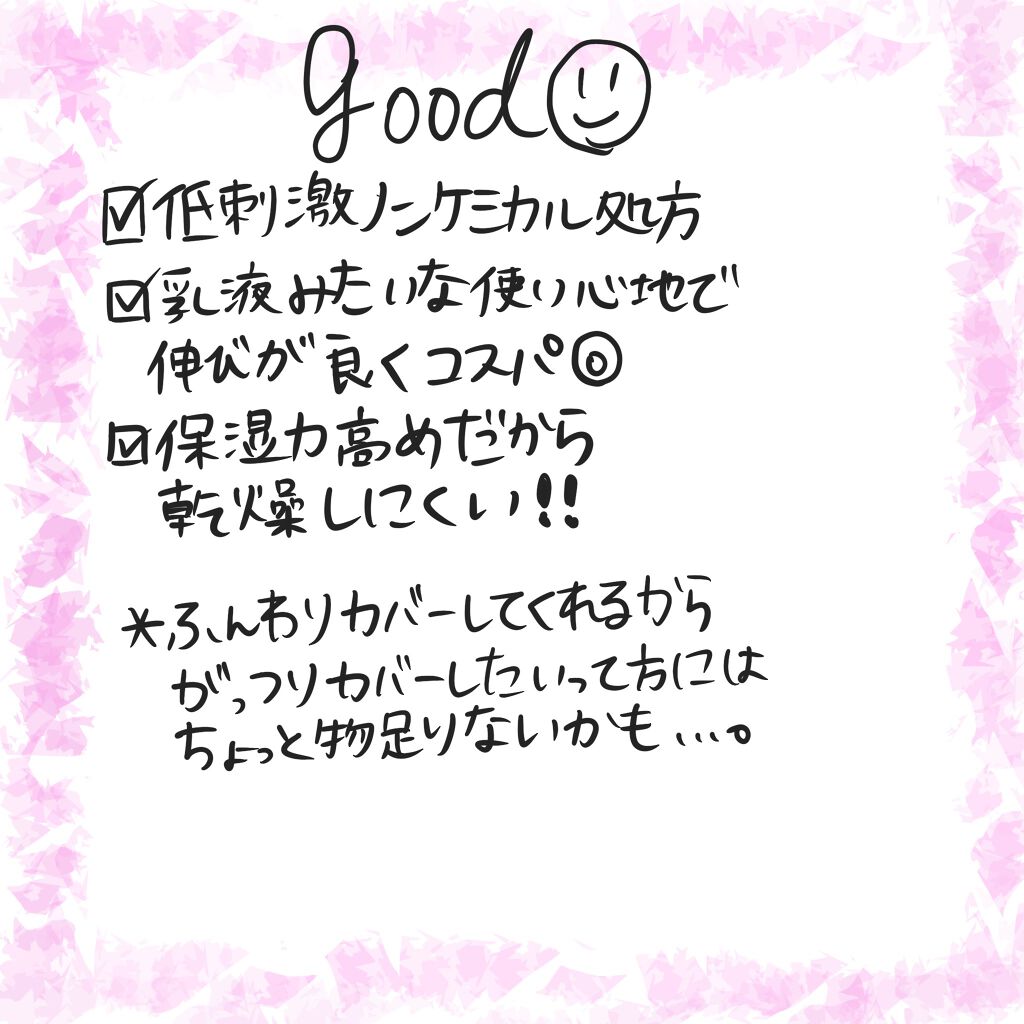 good
☑低刺激ノンケミカル処方
☑乳液みたいな使い心地で
伸びが良くコスパ◎
☑保湿力高めだから
乾燥しにくい!!
*ふんわりカバーしてくれるから
がっつりカバーしたいって方には
ちょっと物足りないかも…。